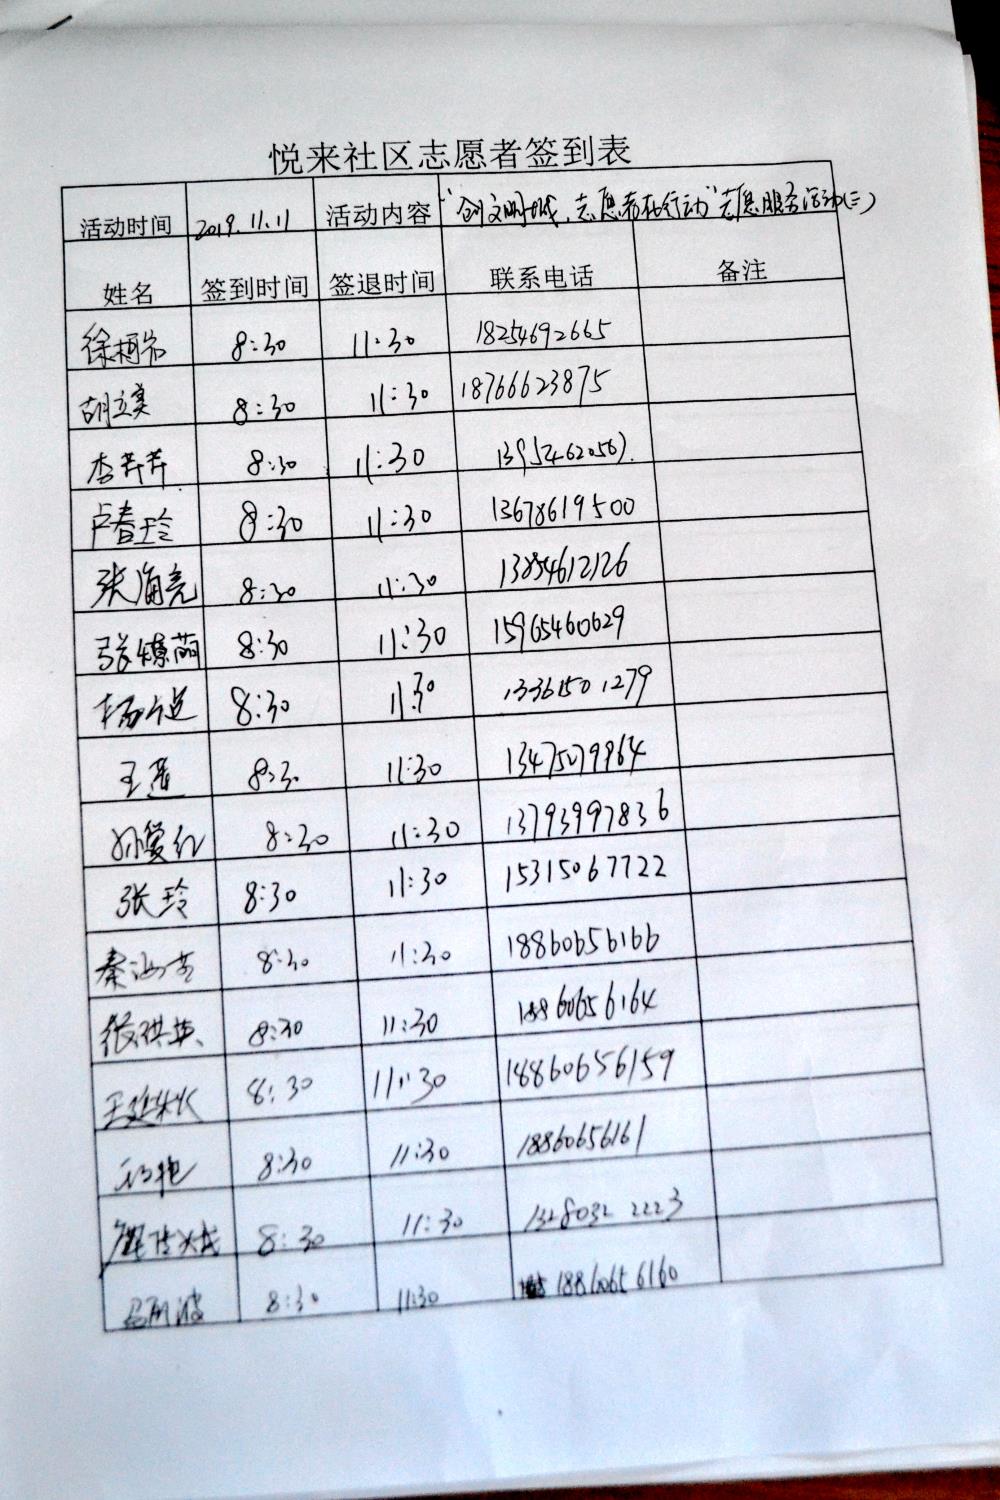 悦来社区志愿者签到表
活动时间 2019.11.11 活动内容 "创文明城，志愿者在行动"志愿服务活动(三)
姓名 签到时间 签退时间 联系电话 备注
徐 8:30 11:30 18254692665
胡立美 8:30 11:30 18766623875
李芹芹 8:30 11:30
卢春玲 8:30 11:30 13678619500
张海亮 8:30 11:30 13854612126
张 萌 8:30 11:30 15965460629
杨 8:30 11:30 13361501279
王 8:30 11:30 13475079964
孙爱红 8:30 11:30 13793997836
张玲 8:30 11:30 15315067722
秦 8:30 11:30 18860656166
张洪英 8:30 11:30 18860656164
王 8:30 11:30 18860656159
8:30 11:30 18860656161
8:30 11:30 1328032 2223
8:30 11:30 18860656160